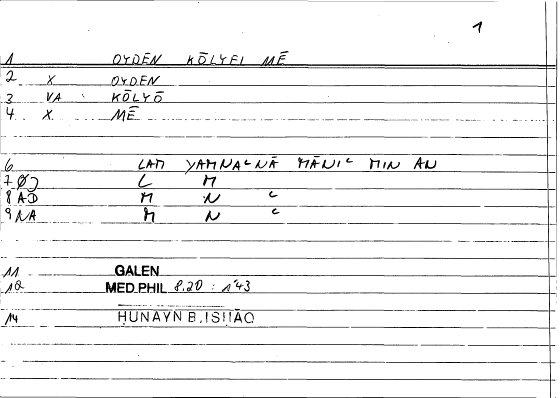 1
1 OYDĒN KŌLYEI MĒ
2 X OYDEN
3 VA KŌLYŌ
4 X MĒ
6 LAM YAMNAᶜNĀ MĀNIᶜ MIN AN
7 ØJ L M
8 AD M N ᶜ
9 NA M N ᶜ
11 GALEN
12 MED.PHIL 8.20 : 1*43
14 HUNAYN B.ISHĀQ